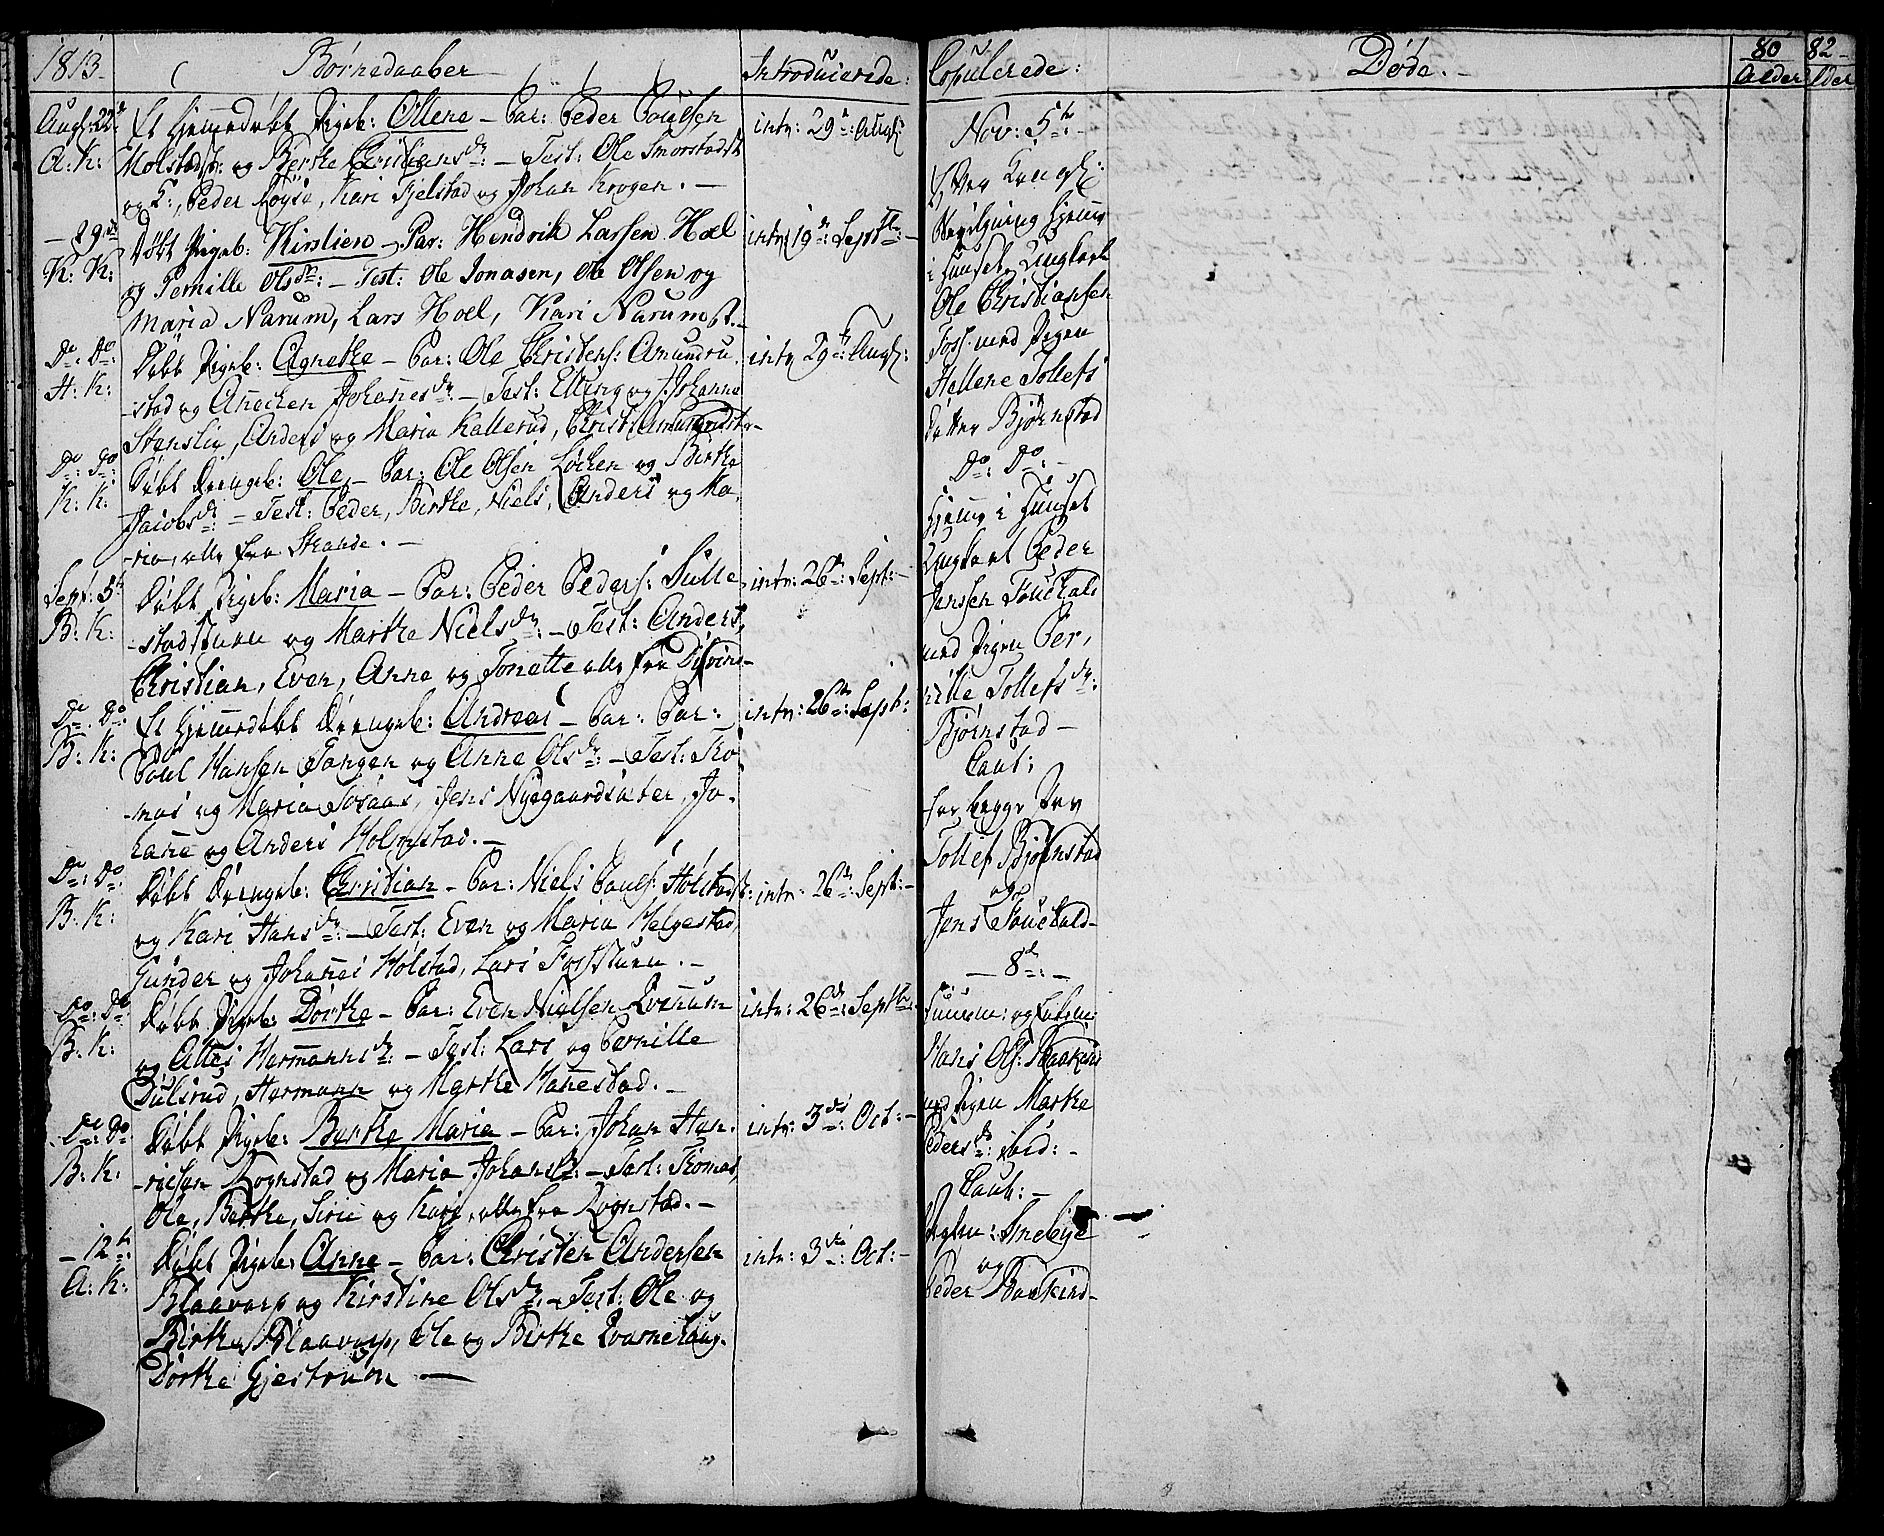 1813.
Børnedaaber
Introducerede:
Augs: 22de
A: K:
Et hjemmedøbt Pigeb: Ollene – Par: Peder Poulsen
Molstadst: og Berthe Christiansdr: – Test: Ole Smorstadst
og K:, Peder Røyse, Kari Fjelstad og Johan Krogen. –
intr: 29de: Augs:
– 29de
K: K:
Døbt Pigeb: Kirstien – Par: Hendrik Larsen Hoel
og Pernille Olsdr: – Test: Ole Jonasen, Ole Olsen og
Maria Narum, Lars Hoel, Kari Narumst. –
intr: 19de: Septbr: –
Do: Do:
H: K:
Døbt Pigeb: Agnethe – Par: Ole Christens: Amundru-
-stad og Anechen Johanesdr: – Test: Elling og Johanne
Stenslie, Anders og Maria Kallerud, Christ:
intr 29de: Augs:
Do: Do:
K: K:
Døbt Drengeb: Ole – Par: Ole Olsen Løchen og Birthe
Jacobsdr: – Test: Peder, Birthe, Niels, Anders og Ma-
-ria, alle fra Strande. –
Sept: 5te
B: K:
Døbt Pigeb: Maria – Par: Peder Peders: Sulle-
-stadstuen og Marthe Nielsdr: – Test: Anders,
Christian, Even, Anne og Tonette alle fra
intr: 26de: Sept: –
Do: Do:
B: K:
Et hjemmedøbt Drengeb: Andreas – Par: Par:
Poul Hansen Tangen og Anne Olsdr: – Test: Tho-
mas og Maria Tosaas, Jens Nygaardsæter, Jo-
hane og Anders Holmstad. –
intr: 26de: Sept:
Do: Do:
B: K:
Døbt Drengeb: Christian – Par: Niels Pouls: Holstadst:
og Kari Hansdr: – Test: Even og Maria Helgestad,
Gunder og Johanes Holstad, Lars Fosstuen. –
intr: 26de: Sept: –
Do: Do
B: K:
Døbt Pigeb: Dorthe – Par: Even Nielsen Evenrum
og Hermannsdr: – Test: Lars og Pernille
Dulsrud, Hermann og Marthe Hanestad. –
intr: 26de: Septbr: –
Do: Do
B: K:
Døbt Pigeb: Berthe Maria – Par: Johan Hen-
-richsen Rognstad og Maria Johansdr: – Test: Thomas,
Ole, Berthe, Sirie og Kari, alle fra Rognstad. –
intr: 3die: Oct: –
– 12te:
A: K:
Døbt Pigeb: Anne – Par: Christen Andersen
Blaavarp og Kirstine Olsdr: – Test: Ole og
Birthe Blaavarp, Ole og Birthe
Dorthe Gjestrum –
intr: 3die: Oct: –
Copulerede:
Nov: 5te: –
efter Kongel:
Bevilgning hjemme
i Huuset Ungkarl
Ole Christiansen
Foss med Pigen
Hellene Tollefs
Datter Bjørnstad
Do: Do: –
hjemme i Huuset
Ungkarl Peder
Jensen
med Pigen Per,
nille Tollefsdr:
Bjørnstad –
Caut:
for begge Par
Tollef Bjørnstad
og
Jens
– 8de: –
Hans Ols: Baakind
med Pigen Marthe
Pedersdr: ibid: –
Caut: –
Sneleye
og
Peder Baakind –
Døde. –
80
Alder
82 –
lder